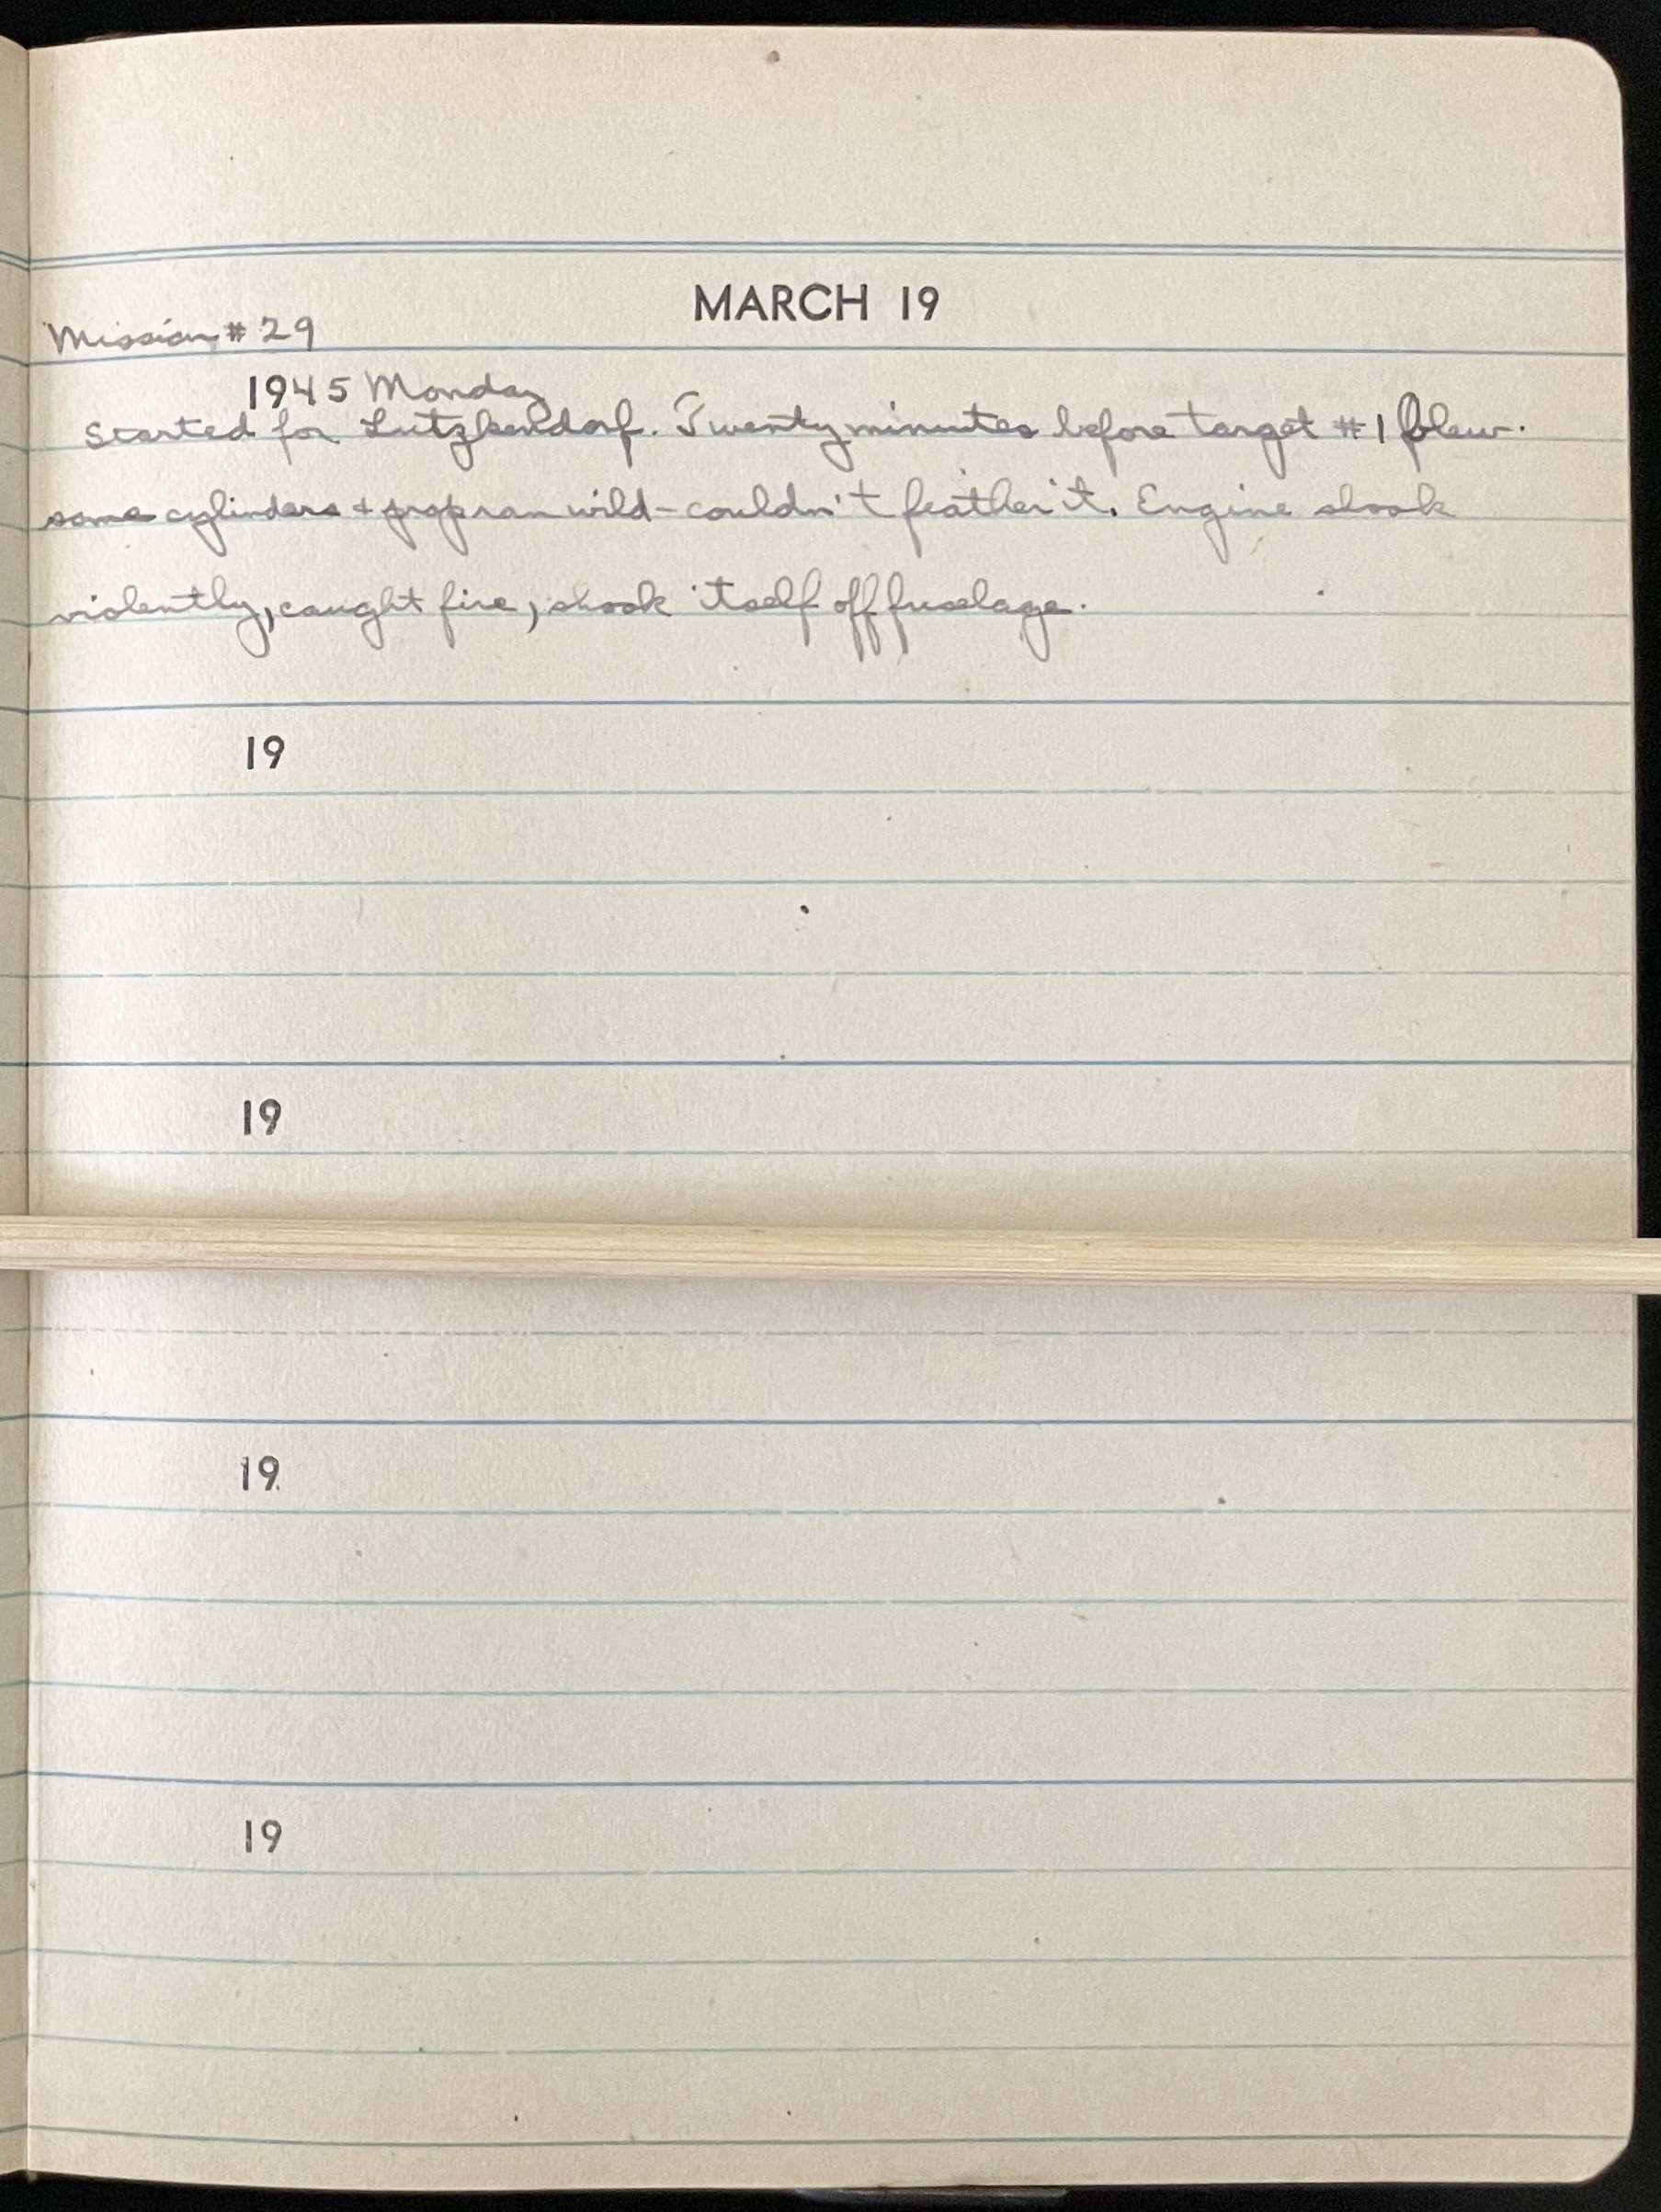 MARCH 19
Mission #29
1945 Monday
Started for Lutzkendorf. Twenty minutes before target #1 blew
some cylinders & prop ran wild - couldn't feather it. Engine shook
violently, caught fire, shook itself off fuselage.
19
19
19
19